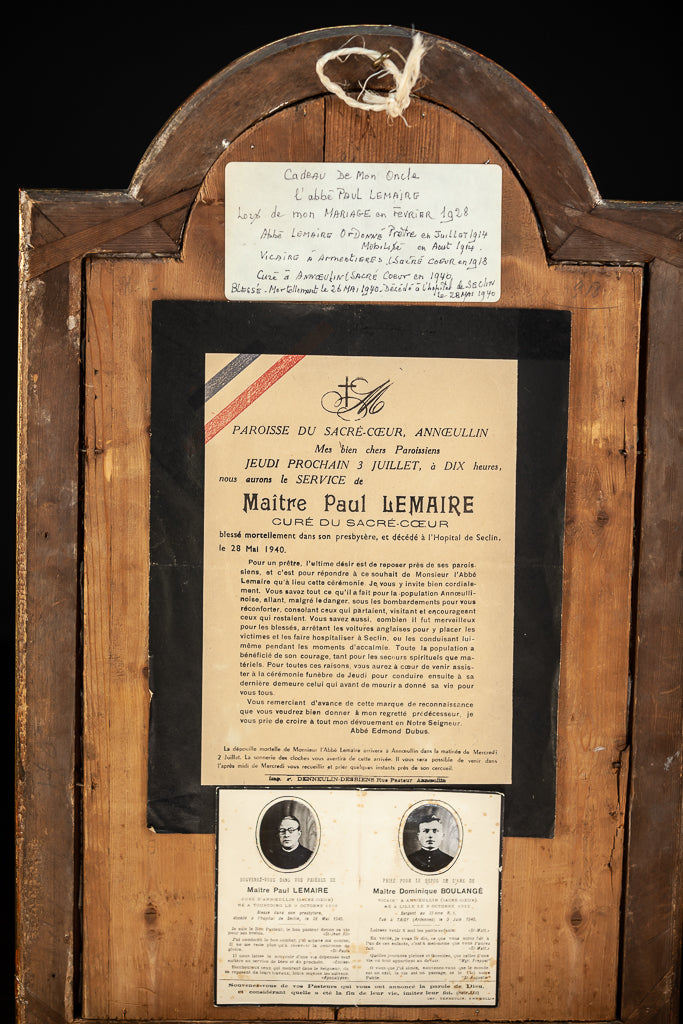 CADEAU DE MON ONCLE
L'abbé PAUL LEMAIRE
Lors de mon MARIAGE en FEVRIER 1928
Abbé LEMAIRE ORDONNÉ Prêtre en Juillet 1914
Mobilisé en Aout 1914.
VICAIRE à ARMENTIERES (SACRÉ COEUR en 1918
Curé à ANNŒULIN (SACRÉ COEUR en 1940,
BLESSÉ. Mortellement le 26 MAI 1940. Décédé à l'hopital de SECLIN
le 28 MAI 1940
PAROISSE DU SACRÉ-CŒUR, ANNŒULLIN
Mes bien chers Paroissiens
JEUDI PROCHAIN 3 JUILLET, à DIX heures,
nous aurons le SERVICE de
Maître Paul LEMAIRE
CURÉ DU SACRÉ-CŒUR
blessé mortellement dans son presbytère, et décédé à l'Hopital de Seclin,
le 28 Mai 1940.
Pour un prêtre, l'ultime désir est de reposer près de ses parois-
siens, et c'est pour répondre à ce souhait de Monsieur l'Abbé
Lemaire qu'à lieu cette cérémonie. Je vous y invite bien cordiale-
ment. Vous savez tout ce qu'il a fait pour la population Annœulli-
noise, allant, malgré le danger, sous les bombardements pour vous
réconforter, consolant ceux qui partaient, visitant et encourageant
ceux qui restaient. Vous savez aussi, combien il fut merveilleux
pour les blessés, arrêtant les voitures anglaises pour y placer les
victimes et les faire hospitaliser à Seclin, ou les conduisant lui-
même pendant les moments d'accalmie. Toute la population a
bénéficié de son courage, tant pour les secours spirituels que ma-
tériels. Pour toutes ces raisons, vous aurez à cœur de venir assis-
ter à la cérémonie funèbre de Jeudi pour conduire ensuite à sa
dernière demeure celui qui avant de mourir a donné sa vie pour
vous tous.
Vous remerciant d'avance de cette marque de reconnaissance
que vous voudrez bien donner à mon regretté prédécesseur, je
vous prie de croire à tout mon dévouement en Notre Seigneur.
Abbé Edmond Dubus.
La dépouille mortelle de Monsieur l'Abbé Lemaire arrivera à Annœullin dans la matinée de Mercredi
2 Juillet. La sonnerie des cloches vous avertira de cette arrivée. Il vous sera possible de venir dans
l'après midi de Mercredi vous recueillir et prier quelques instants près de son cercueil.
Imp. DENNEULIN-DESRIENS Rue Pasteur Annœullin
SOUVENEZ-VOUS DANS VOS PRIÈRES DE
Maître Paul LEMAIRE
CURÉ D'ANNŒULLIN (SACRÉ-CŒUR)
Blessé dans son presbytère,
décédé à l'hopital de Seclin, le 28 Mai 1940.
PRIEZ POUR LE REPOS DE L'AME DE
Maître Dominique BOULANGÉ
VICAIRE A ANNŒULLIN (SACRÉ-CŒUR)
Souvenez-vous de vos Pasteurs qui vous ont annoncé la parole de Dieu,
et considérant quelle a été la fin de leur vie, imitez leur foi.